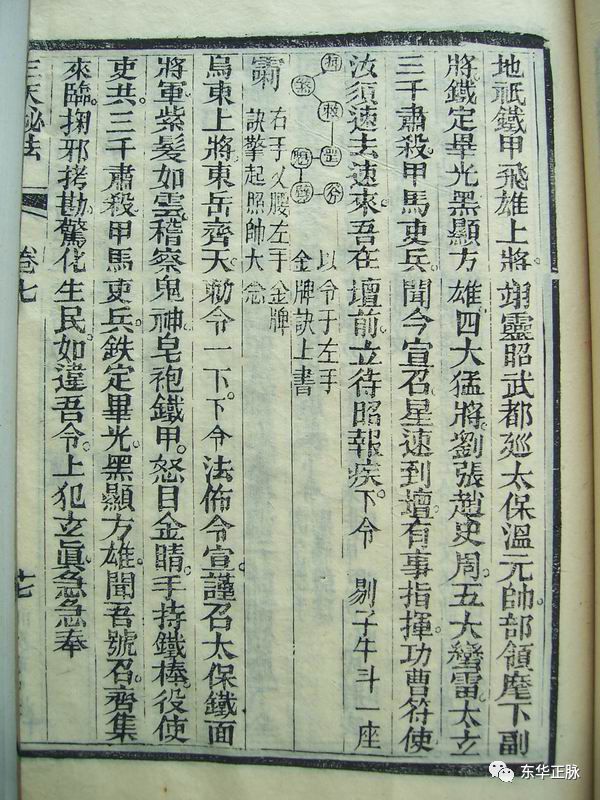 地祇鐵甲飛雄上將。翊靈昭武都廵太保溫元帥。部領麾下副
將鐵定畢光黑顯方雄。四大猛將劉張趙史周。五大蠻雷。太玄
三千肅殺甲馬吏兵。聞今宣召星速到壇。有事指揮功曹符使
汝須速去速來。吾在壇前。立待昭報疾。下令 剔子午斗一座
以令于左手
金牌訣上書
右手乂腰左手金牌
訣擎起照帥大念
烏東上將東岳齊天。勅令一下。下令法佈令宣。謹召太保鐵面
將軍紫髮如雲。稽察鬼神。皂袍鐵甲。怒目金睛。手持鐵棒。役使
吏共三千肅殺甲馬吏兵。鉄定畢光。黑顯方雄。聞吾號召。齊集
來臨。掬邪拷勘。驚化生民。如違吾令。上犯玄眞急急奉
天秘法 卷七
东华正脉